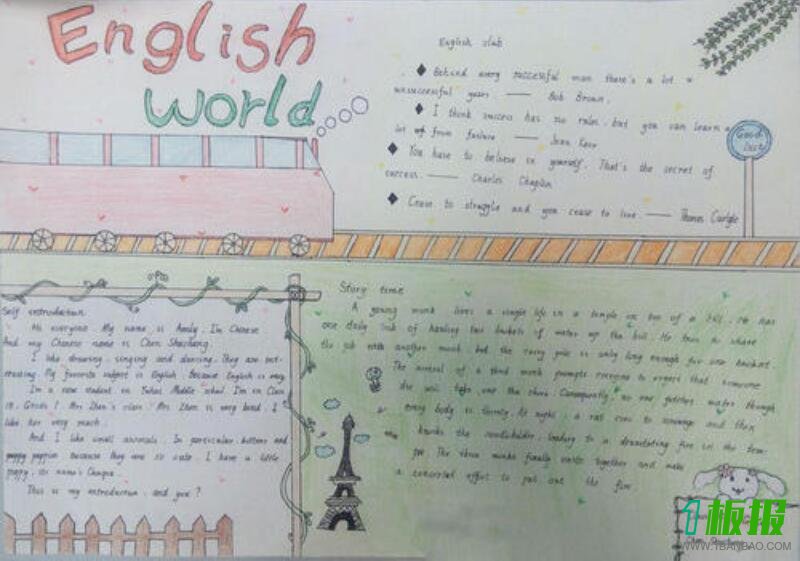 English
World
English club
◆ Behind every successful man there's a lot
unsuccessful years. —— Bob Brown.
◆ I think success has no rules, but you can learn a
lot from failure —— Jean Kerr
◆ You have to believe in yourself. That's the secret of
success. —— Charles Chaplin
◆ Cease to struggle and you cease to live —— Thomas Carlyle
Good
Self introduction
Hi everyone. My name is I'm Chinese
And my Chinese name is Chen
I like drawing, singing and dancing. They are int-
eresting. My favorite subject is English. Because English is easy
I'm a new student in Middle school. I'm in Class
Grade 7. Mrs class. Mrs is very kind. I
like her very much.
And I like small animals. In particular kittens and
puppy because they are so cute. I have a little
puppy, its name's
This is my introduction. and you?
Story time
A young monk lives a simple life in a temple on top of a hill. He has
one daily task of hauling two buckets of water up the hill. He tries to share
the job with another monk, but the carry pole is only long enough for one bucket.
The arrival of a third monk prompts everyone to expect that someone
else will take on the chore. Consequently, no one fetches water though
every body is thirsty. At night, a rat comes to scrounge and then
knocks the candleholder, leading to a devastating fire in the tem-
ple. The three monks finally unite together and make
a concerted effort to put out the fire.
1板报
WWW.1BANBAO.COM